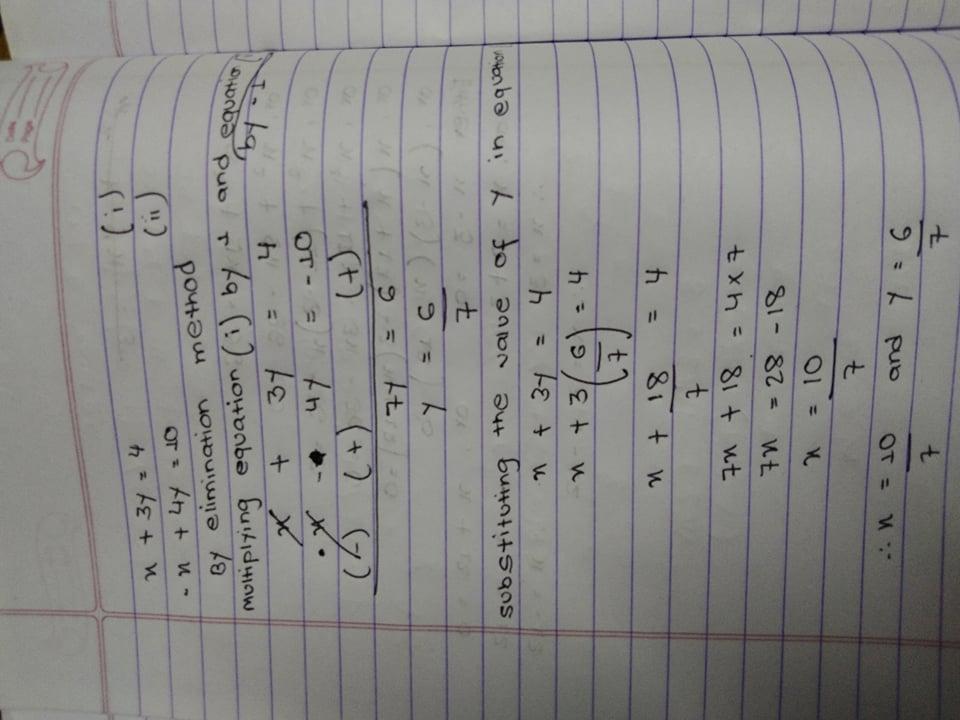 x + 3y = 4 (i)
- x + 4y = 10 (ii)
By elimination method
multiplying equation (i) by 1 and equation
by - 1
x + 3y = 4
x - 4y = - 10
(-) (+) (+)
7y = 6
y = 6/7
substituting the value of y in equation
x + 3y = 4
x + 3(6/7) = 4
x + 18/7 = 4
7x + 18 = 4 x 7
7x = 28 - 18
x = 10/7
∴ x = 10/7 and y = 6/7